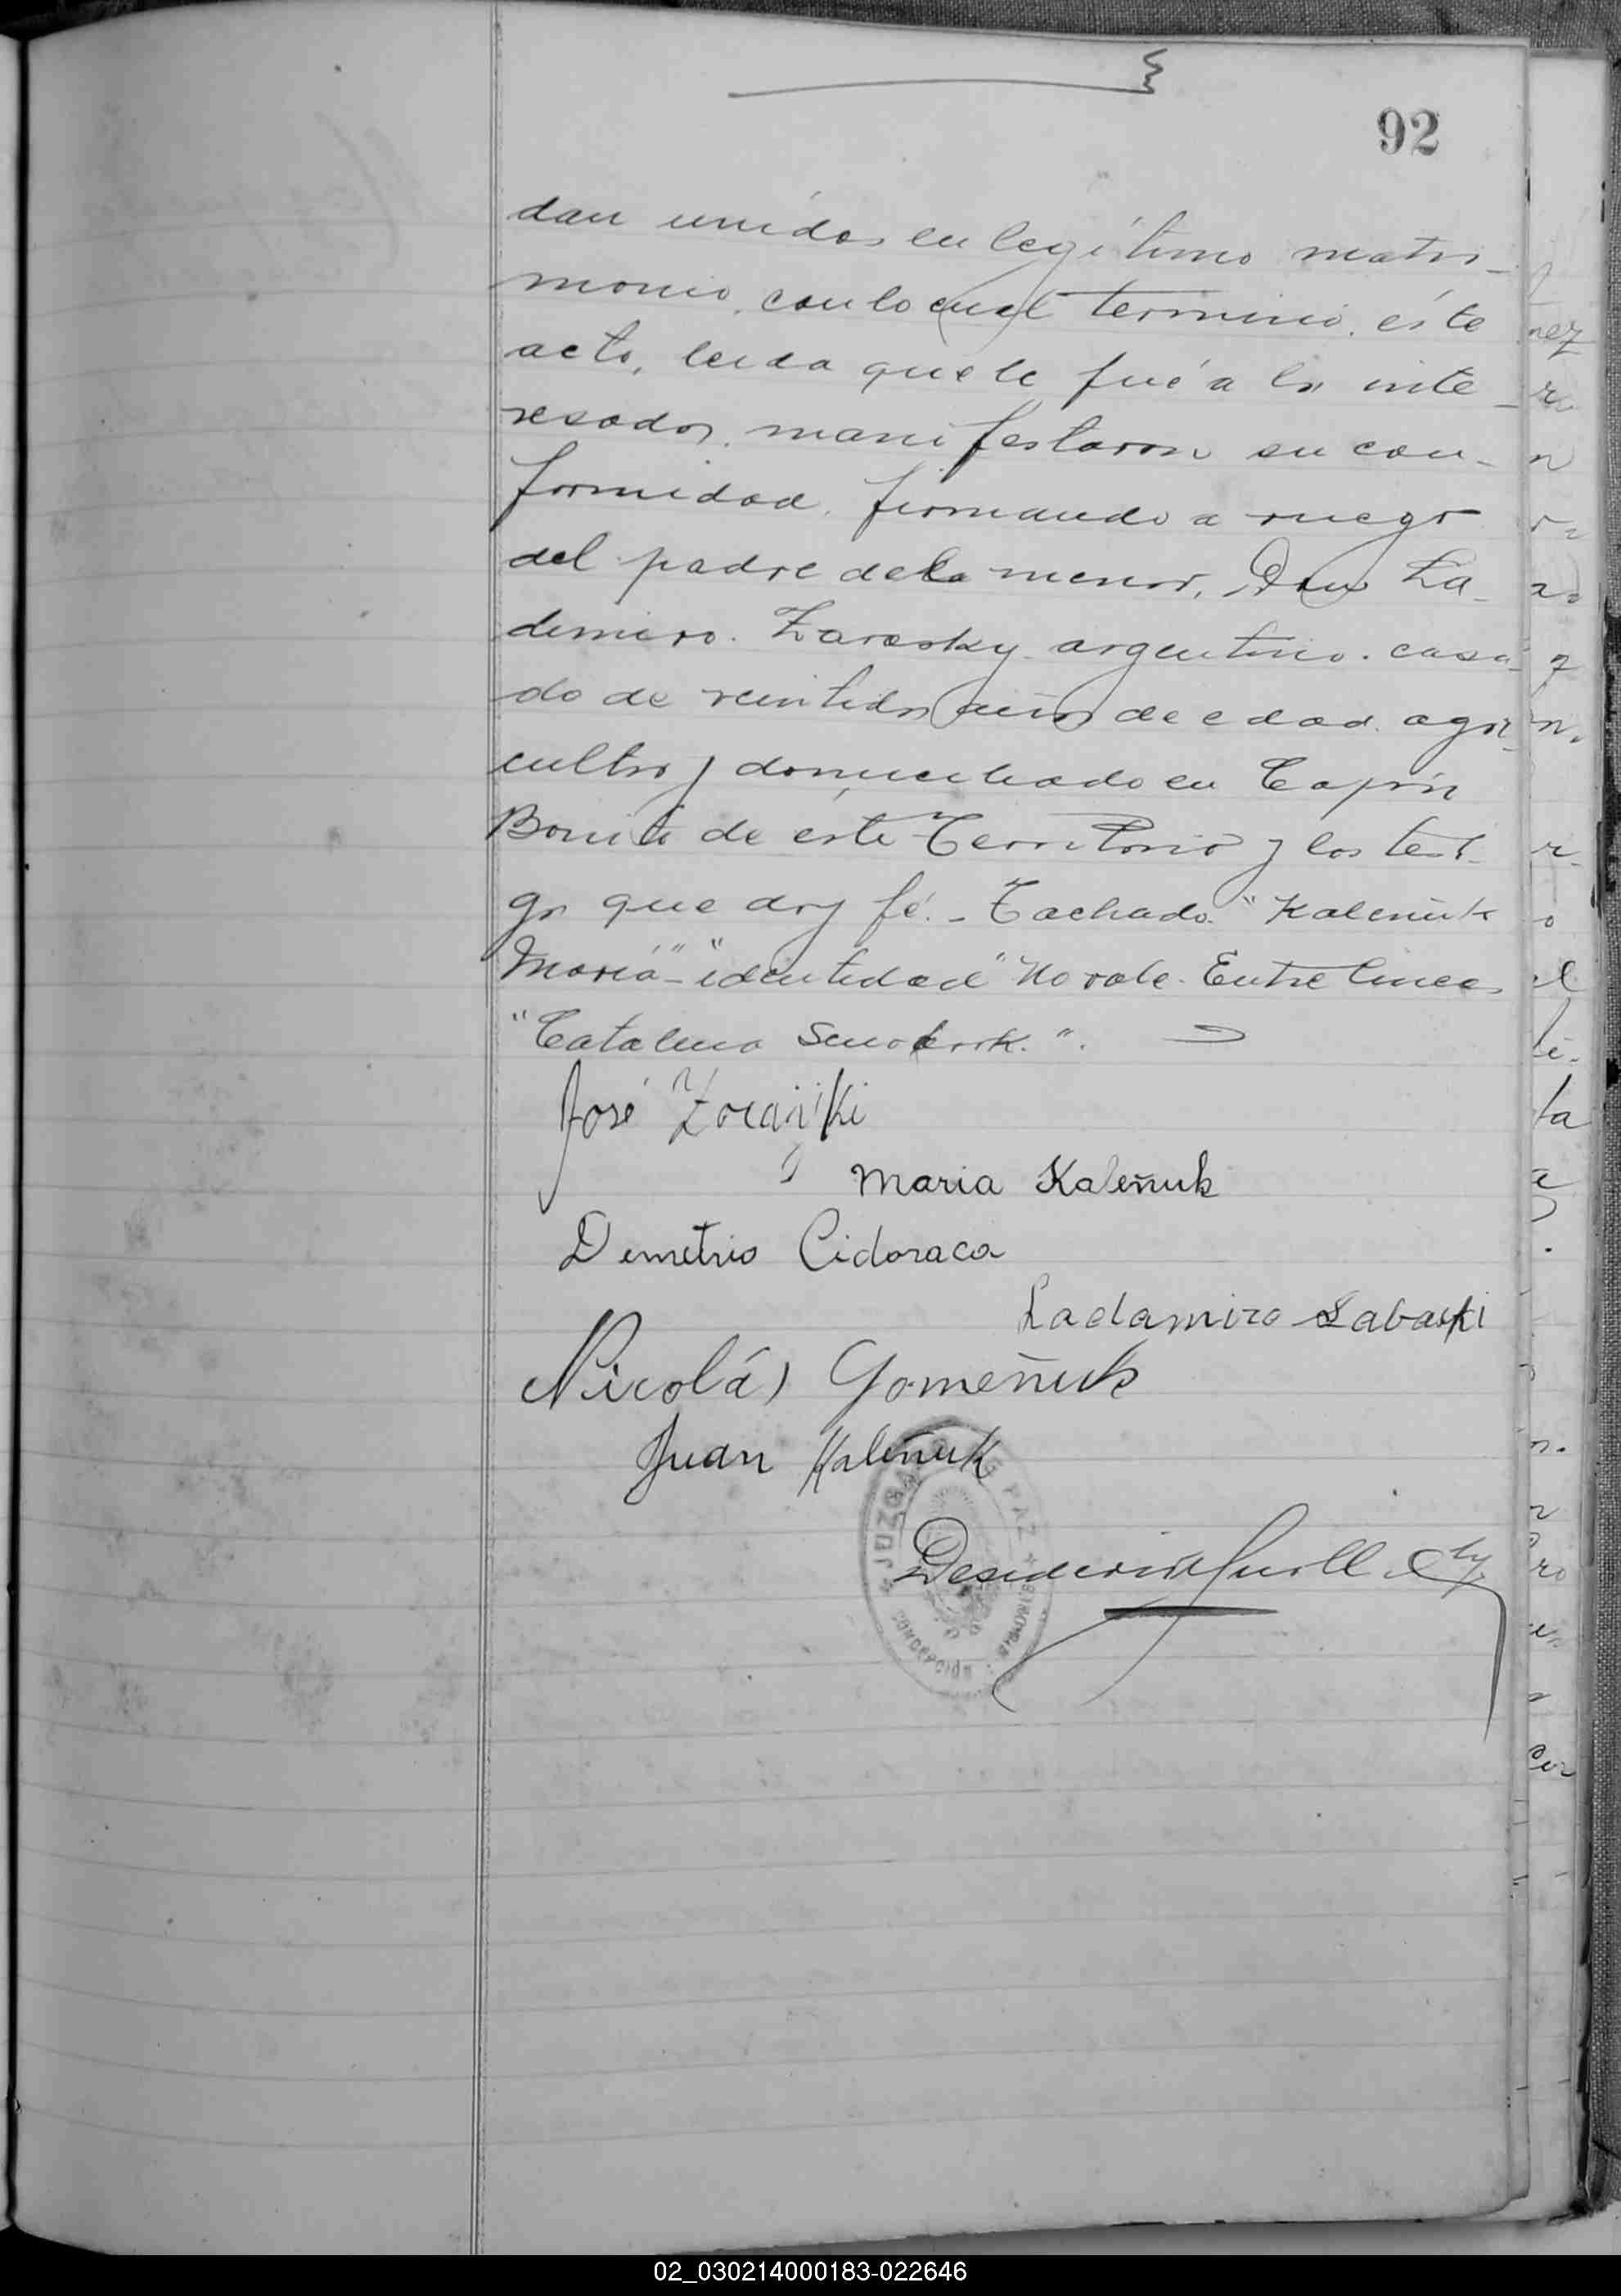 92
dan unidos en legítimo matri-
monio, con lo cual terminó, éste
acto, leida que le fué a los inte-
resados, manifestaron su con-
formidad, firmando a ruego
del padre de la menor, Don La-
dimiro. Zavasky argentino. casa-
do de veintidos años de edad. agri-
cultor y domiciliado en Capón
Bonito de éste Territorio y los testi-
gos que doy fé. - Tachado. "Kaleñuk
María" - "identidad" No vale. Entre lineas
"Catalina ".
José
Maria Kaleñuk
Demetrio Cidoraca
Ladamiro Sabaski
Nicolás Gomeñuk
Juan Kaleñuk
JUZGADO DE PAZ
CONCEPCIÓN
02_030214000183-022646